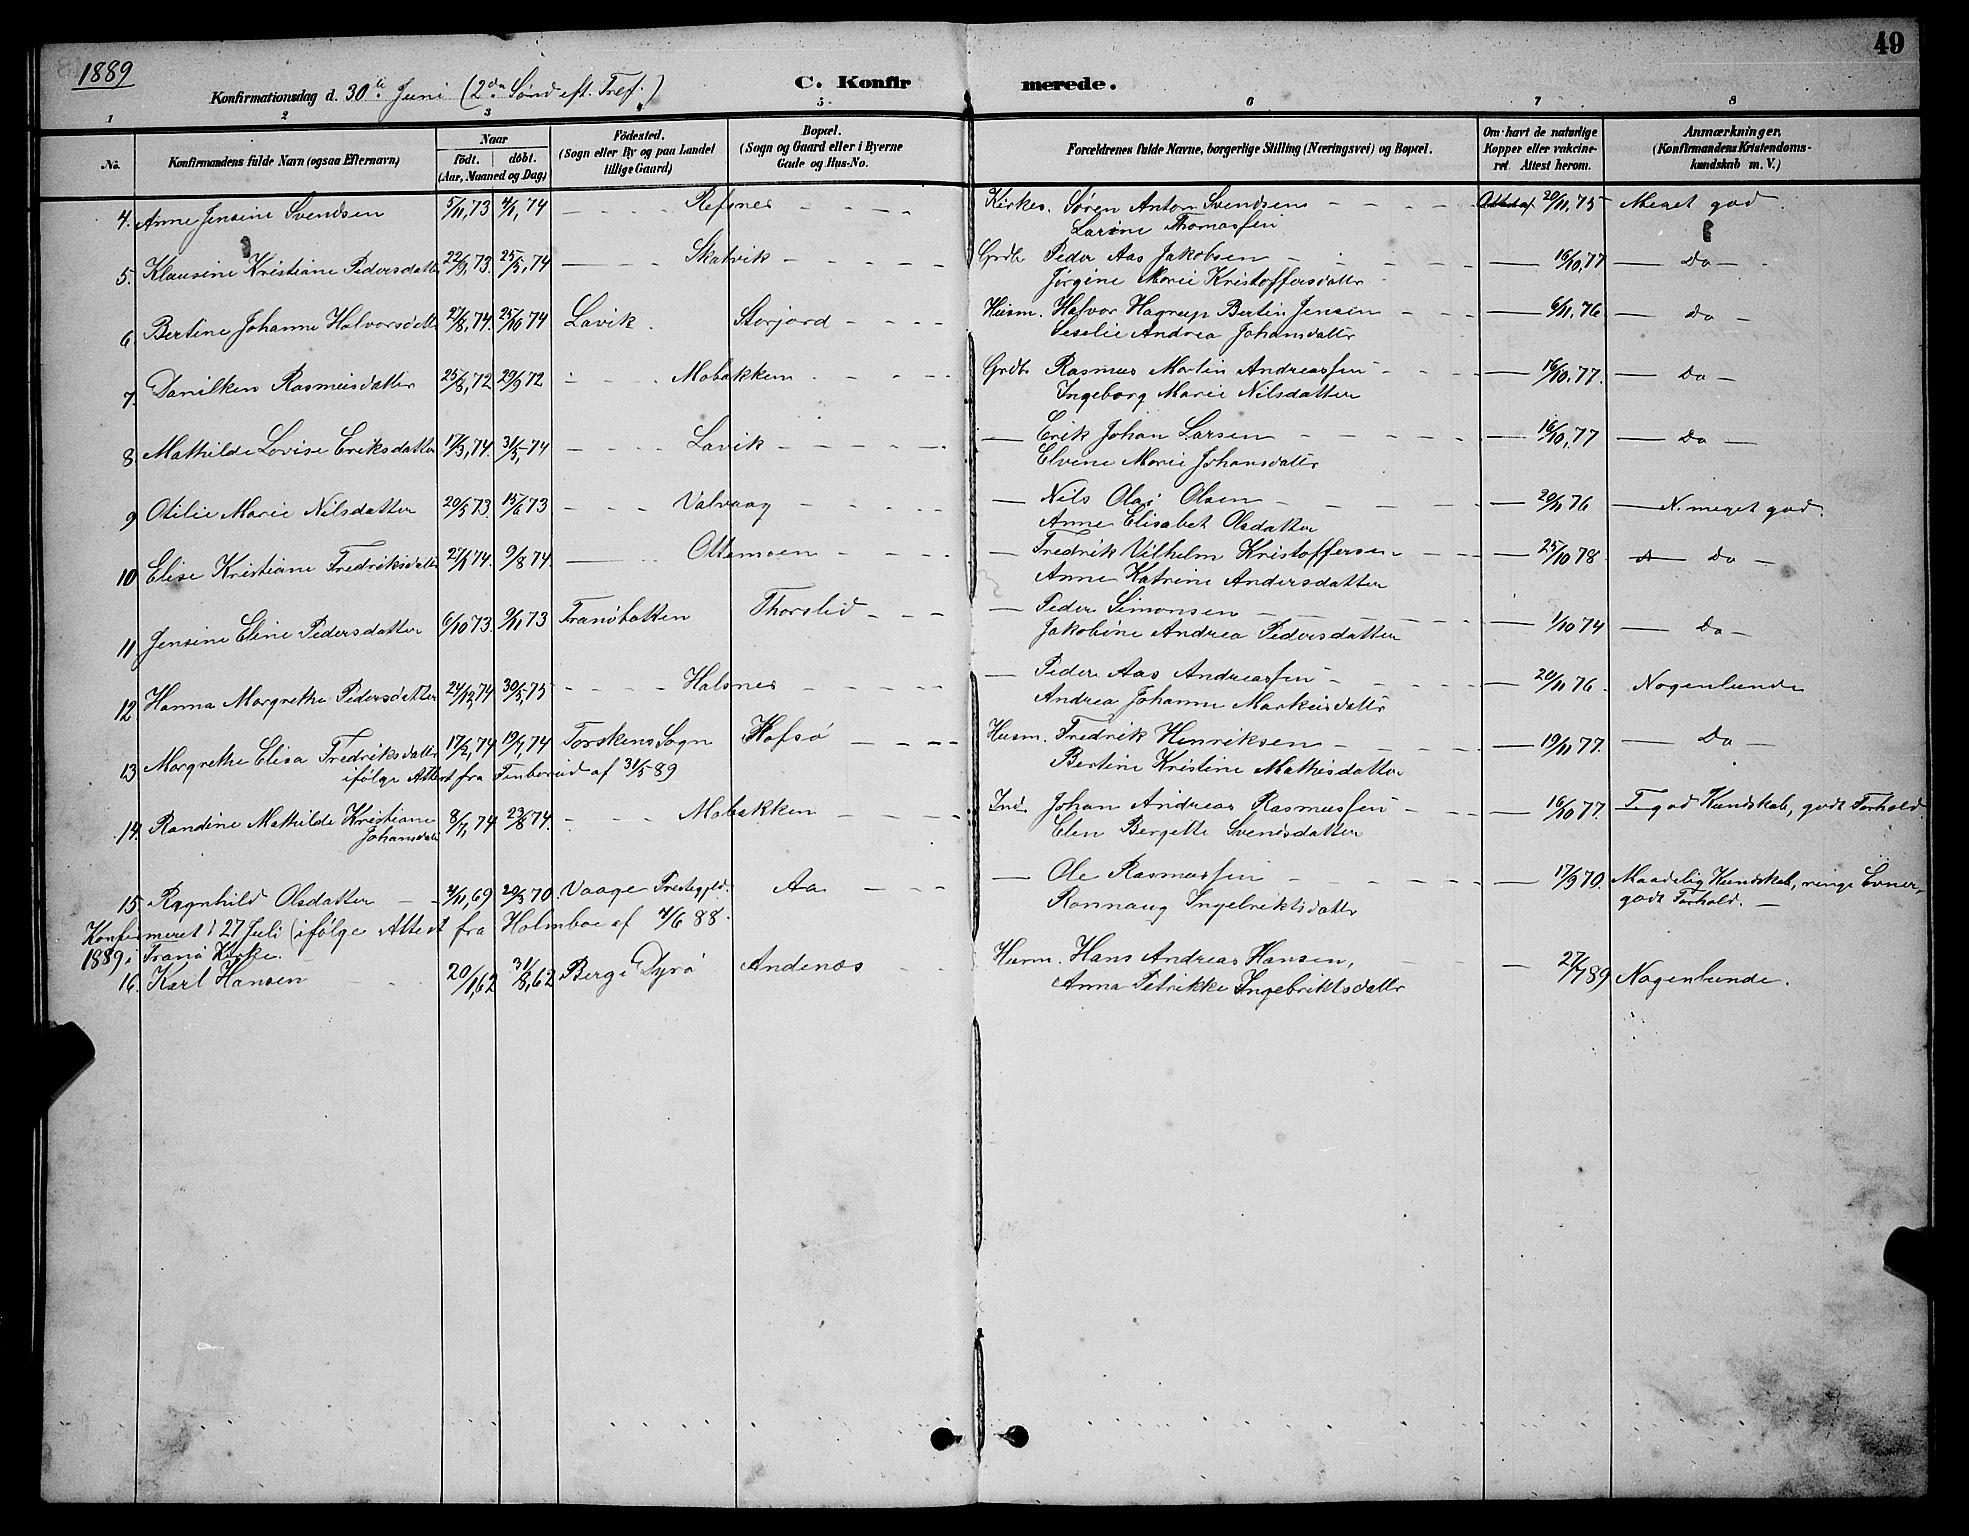 1889
49
C. Konfirmerede.
Konfirmationsdag d. 30te Juni (2den Sønd. eft. Tref.)
1 2 3 4 5 6 7 8
No.
Konfirmandens fulde Navn (ogsaa Efternavn)
Naar
födt. döbt.
(Aar, Maaned og Dag)
Födested.
(Sogn eller By og paa Landet
tillige Gaard)
Bopæl.
(Sogn og Gaard eller i Byerne
Gade og Hus-No.
Forældrenes fulde Navne, borgerlige Stilling (Næringsvei) og Bopæl.
Om havt de naturlige
Kopper eller vakcine-
ret. Attest herom.
Anmærkninger.
(Konfirmandens Kristendoms-
kundskab m. V.)
4. Anne Jensine Svendsen 5/11,73 4/1,74 Refsnes Kirkes. Søren Anton Svendsen Attest af 20/11,75 Meget god.
Larine Thomassen
5. Klausine Kristiane Pedersdatter 22/9,73. 25/5,74 Skatvik Grdb. Peder Aas Jakobsen 16/10,77 Do
Jørgine Marie Kristoffersdatter
6. Bertine Johanne Halvorsdatter 27/8,74. 25/10 74 Lavik Storjord Husm. Halvor Hagrup Bertin Jensen 6/11,76 Do
Seselie Andrea Johansdatter
7. Danilken Rasmusdatter 25/8,72 29/9 72 Mobakken Grdb. Rasmus Martin Andreassen 16/10,77. Do
Ingeborg Marie Nilsdatter
8. Mathilde Lovise Eriksdatter 17/3,74. 31/5,74 Lavik Erik Johan Larsen 16/10,77 Do
Elvine Marie Johansdatter
9. Otilie Marie Nilsdatter 20/5 73. 15/6 73 Valvaag Nils Olai Olsen 20/11 76 N. meget god.
Anne Elisabet Olsdatter
10. Elise Kristiane Fredriksdatter 27/1 74. 9/8 74. Ottemoen Fredrik Vilhelm Kristoffersen 25/10 78 Do
Anne Katrine Andersdatter
11. Jensine Eline Pedersdatter 6/10 73. 9/11 73 Tranöbotten Thorslid Peder Simonsen 1/10 74 Do
Jakobine Andrea Pedersdatter
12. Hanna Margrethe Pedersdatter 24/12,74 30/5,75 Halsnes Peder Aas Andreassen 20/11 76. Nogenlunde
Andrea Johanne Markusdatter
13. Margrethe Elisa Fredriksdatter 17/2,74 19/4,74 Torskens Sogn Hofsö Husm. Fredrik Henriksen 19/11 77. Do
ifölge Attest fra af 31/5 89 Bertine Kristine Mathisdatter
14. Randine Mathilde Kristiane 8/7,74 23/8 74. Mobakken Ind. Johan Andreas Rasmussen 16/10 77. T. god Kundskab, godt Forhold.
Johansdatter Elen Bergitte Svensdatter
15. Ragnhild Olsdatter 4/11,69 20/3 70. Vaage Prestegjeld. Aa Ole Rasmussen 17/9 70. Maadelig Kundskab, ringe Evner,
Rannaug Ingebriktsdatter godt Forhold.
Konfirmeret 27 Juli (ifölge Attest fra Holmboe af 4/6 88.
1889 i Tranö Kirke.
16. Karl Hansen 20/1,62 31/8,62 Berg i Dyrö Andenæs Husm. Hans Andreas Hansen, 27/7 89 Nogenlunde.
Anna Petrikke Ingebriktsdatter